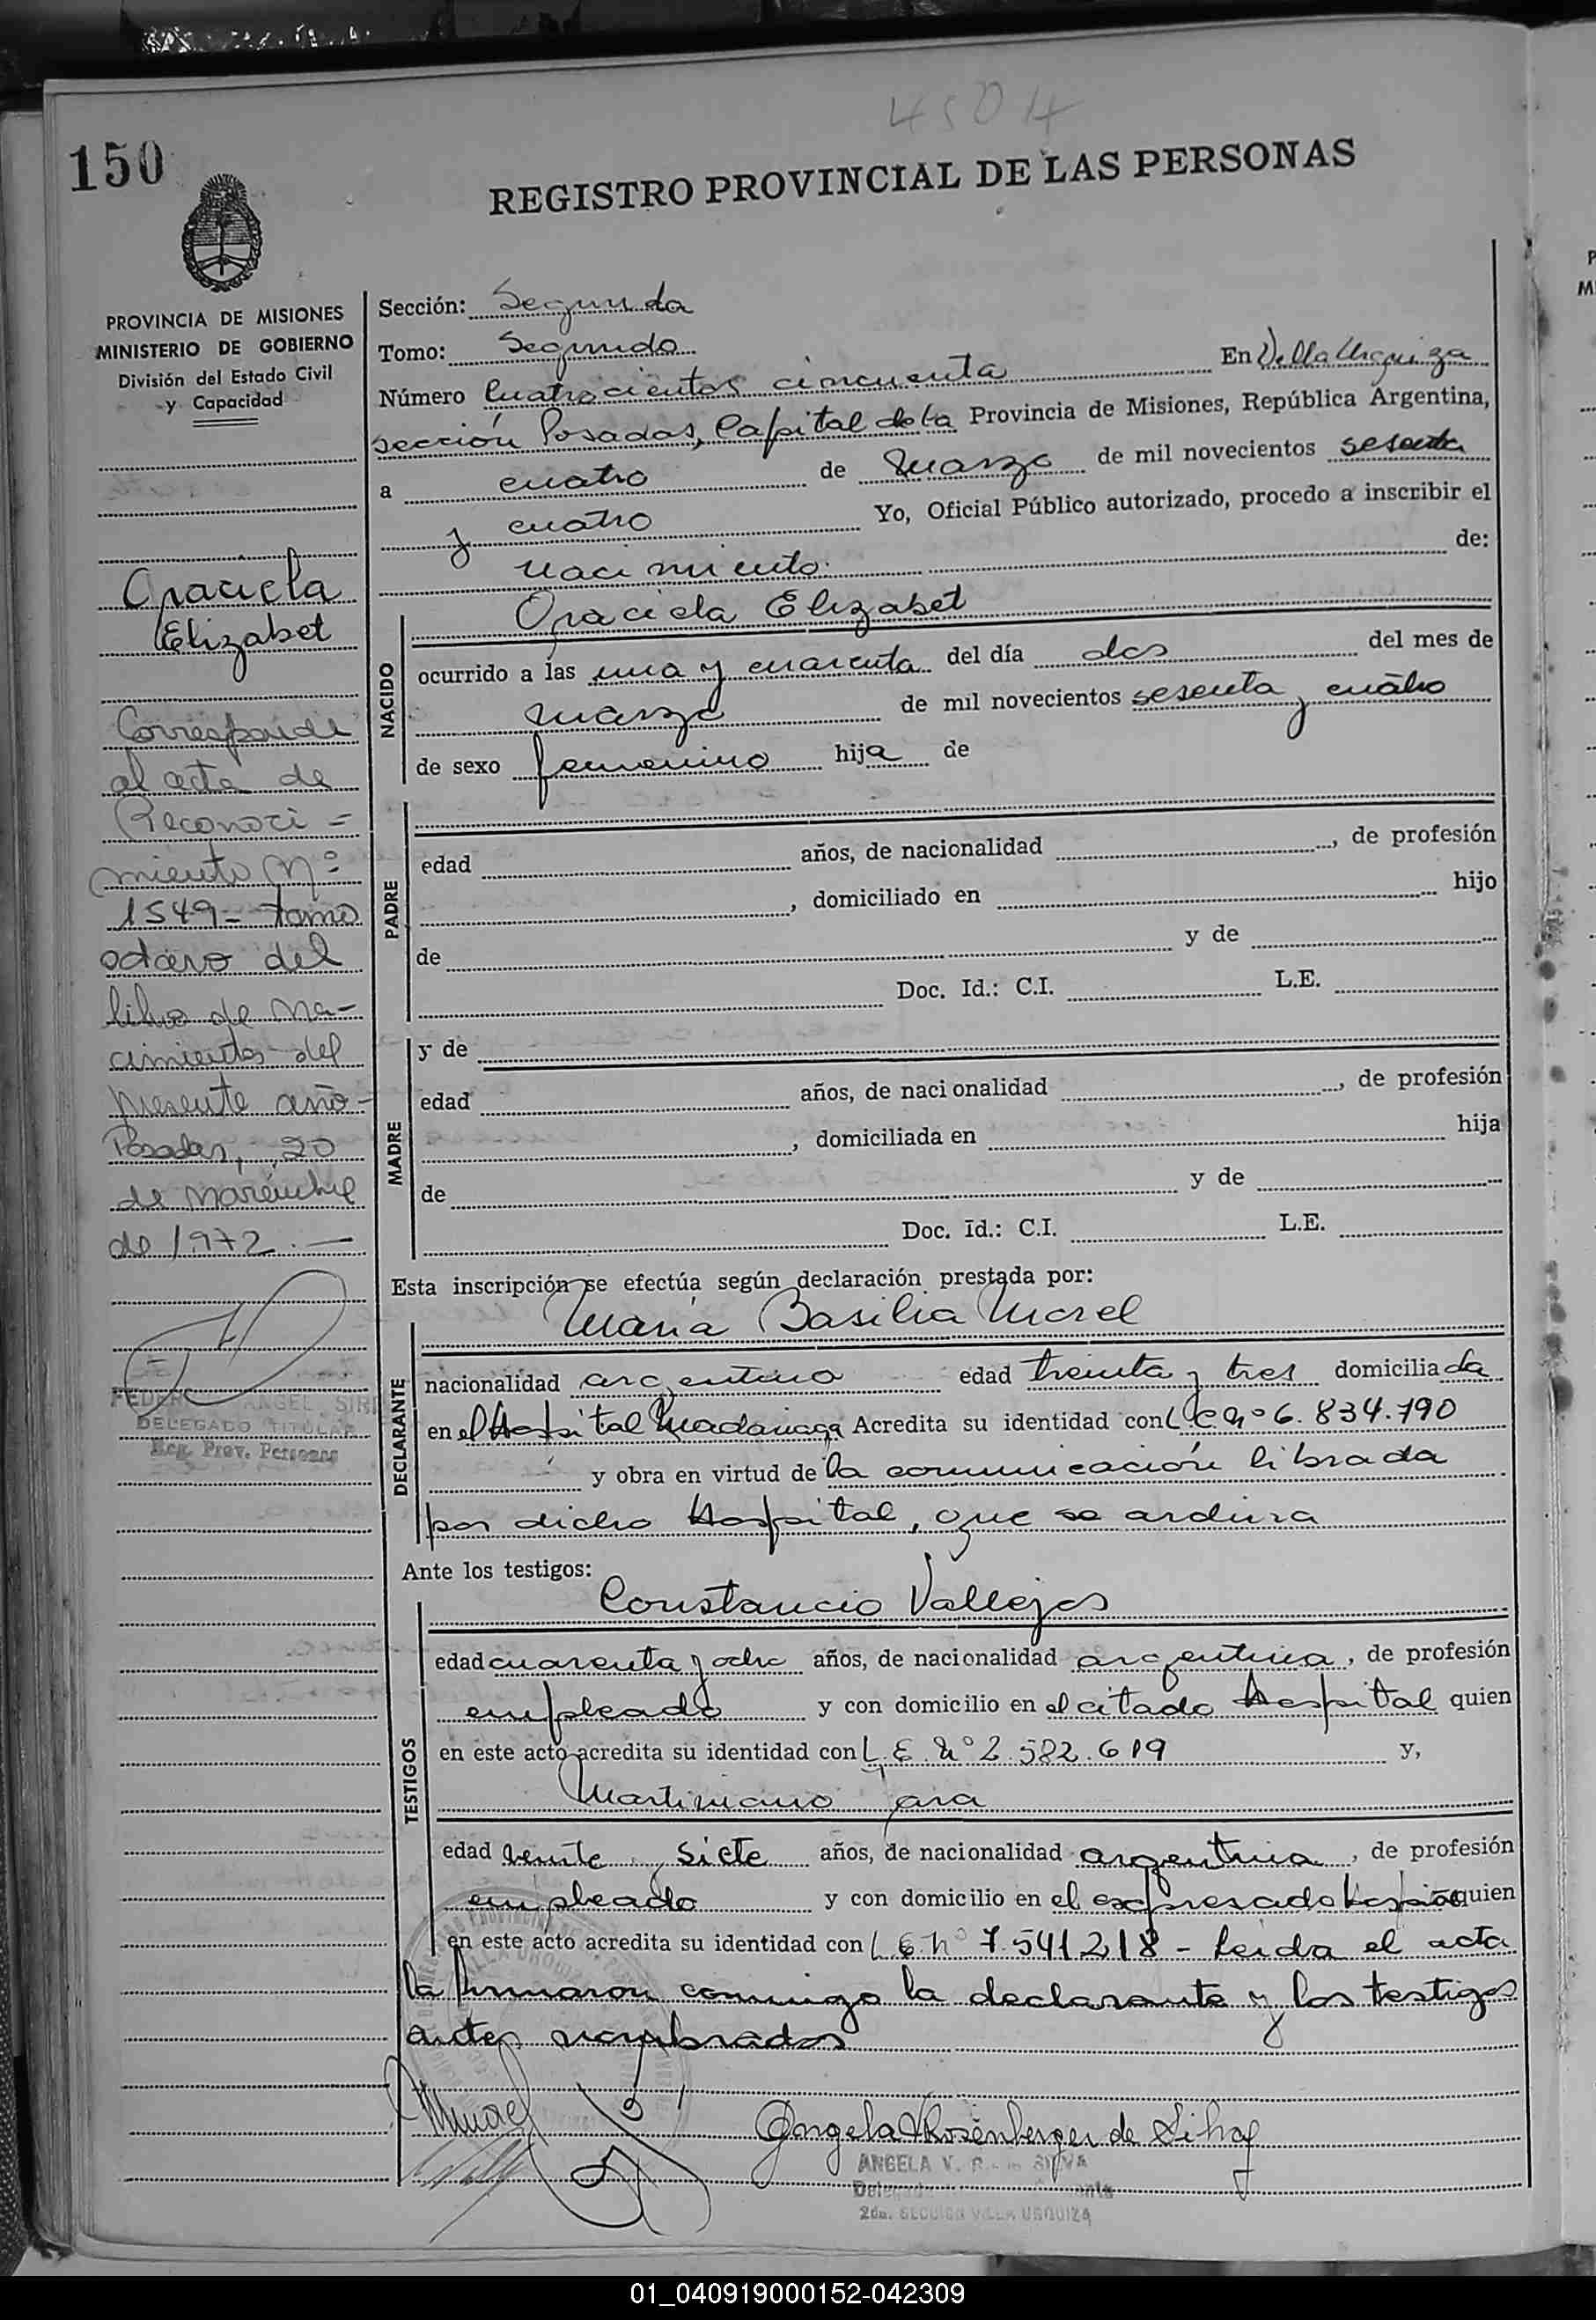 4504
150
REGISTRO PROVINCIAL DE LAS PERSONAS
PROVINCIA DE MISIONES
MINISTERIO DE GOBIERNO
División del Estado Civil
y Capacidad
Graciela
Elizabet
Corresponde
al acta de
Reconoci =
miento Nº
1549 - tomo
octavo del
libro de Na-
cimientos del
presente año -
Posadas, 20
de Noviembre
de 1972. —
ANGEL
DELEGADO TITULAR
Reg. Prov. Personas
Sección: Segunda
Tomo: Segundo
Número Cuatrocientos cincuenta En Villa Urquiza
sección Posadas, Capital de la Provincia de Misiones, República Argentina,
a cuatro de Marzo de mil novecientos sesenta
y cuatro Yo, Oficial Público autorizado, procedo a inscribir el
nacimiento de:
NACIDO
Graciela Elizabet
ocurrido a las una y cuarenta del día dos del mes de
marzo de mil novecientos sesenta y cuatro
de sexo femenino hija de
PADRE
edad años, de nacionalidad , de profesión
, domiciliado en hijo
de y de
Doc. Id.: C.I. L.E.
MADRE
y de
edad años, de naci onalidad , de profesión
, domiciliada en hija
de y de
Doc. Id.: C.I. L.E.
Esta inscripción se efectúa según declaración prestada por:
DECLARANTE
Maria Basilia Morel
nacionalidad argentina edad treinta y tres domiciliada
en el Hospital Madariaga Acredita su identidad con L C nº 6.834.790
y obra en virtud de la comunicación librada
por dicho Hospital, que se archiva
Ante los testigos:
TESTIGOS
Constancio Vallejos
edad cuarenta y ocho años, de nacionalidad argentina, de profesión
empleado y con domicilio en el citado Hospital quien
en este acto acredita su identidad con L.E. Nº 2.582.619 y,
Martiniano Jara
edad veinte y siete años, de nacionalidad argentina, de profesión
empleado y con domicilio en el expresado Hospital quien
en este acto acredita su identidad con L E nº 7.541218 - Leida el acta
la firmaron conmigo la declarante y los testigos
antes nombrados
Morel
Angela Rosenberger de Silva
ANGELA V. R. de SILVA
2da. SECCION VILLA URQUIZA
01_040919000152-042309